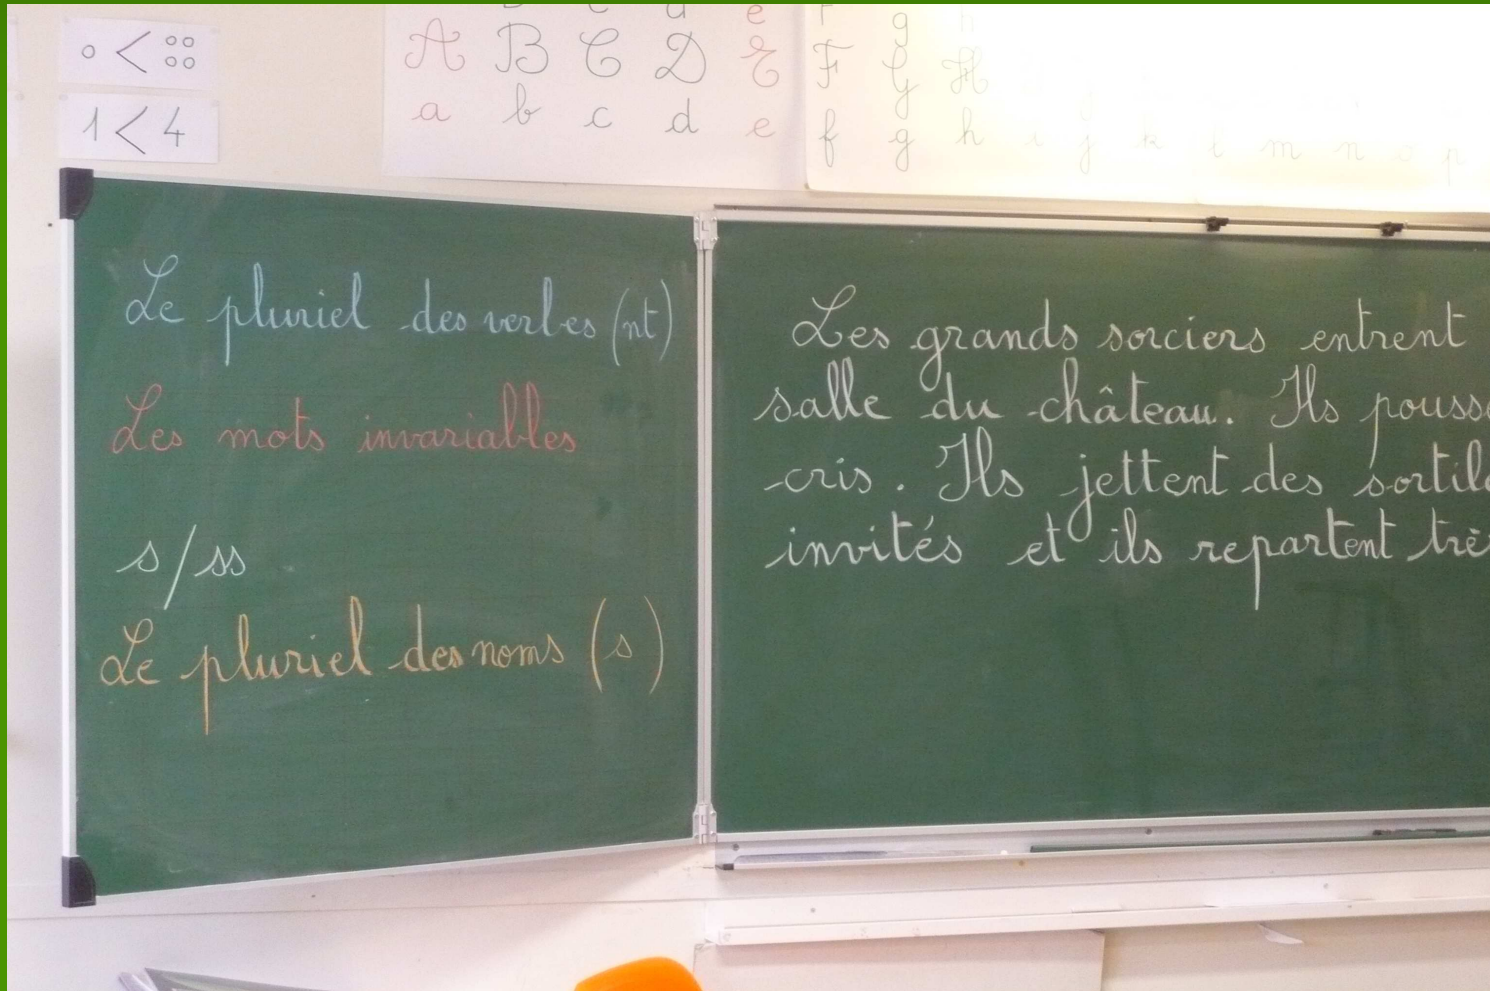 1 < 4
A B C D E F G H
a b c d e f g h i j k l m n o p
Le pluriel des verbes (nt)
Les mots invariables
s/ss
Le pluriel des noms (s)
Les grands sorciers entrent
salle du château. Ils
cris. Ils jettent des
invités et ils repartent